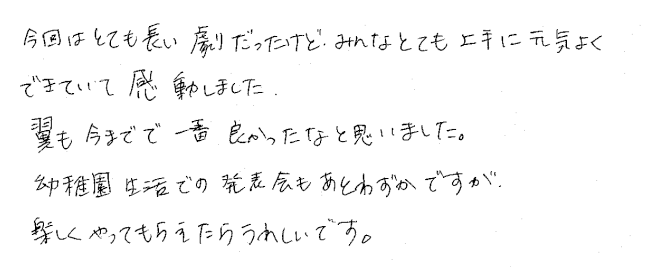 今回はとても長い劇だったけど、みんなとても上手に元気よく
できていて感動しました.
翼も今までで一番良かったなと思いました。
幼稚園生活での発表会もあとわずかですが、
楽しくやってもらえたらうれしいです。